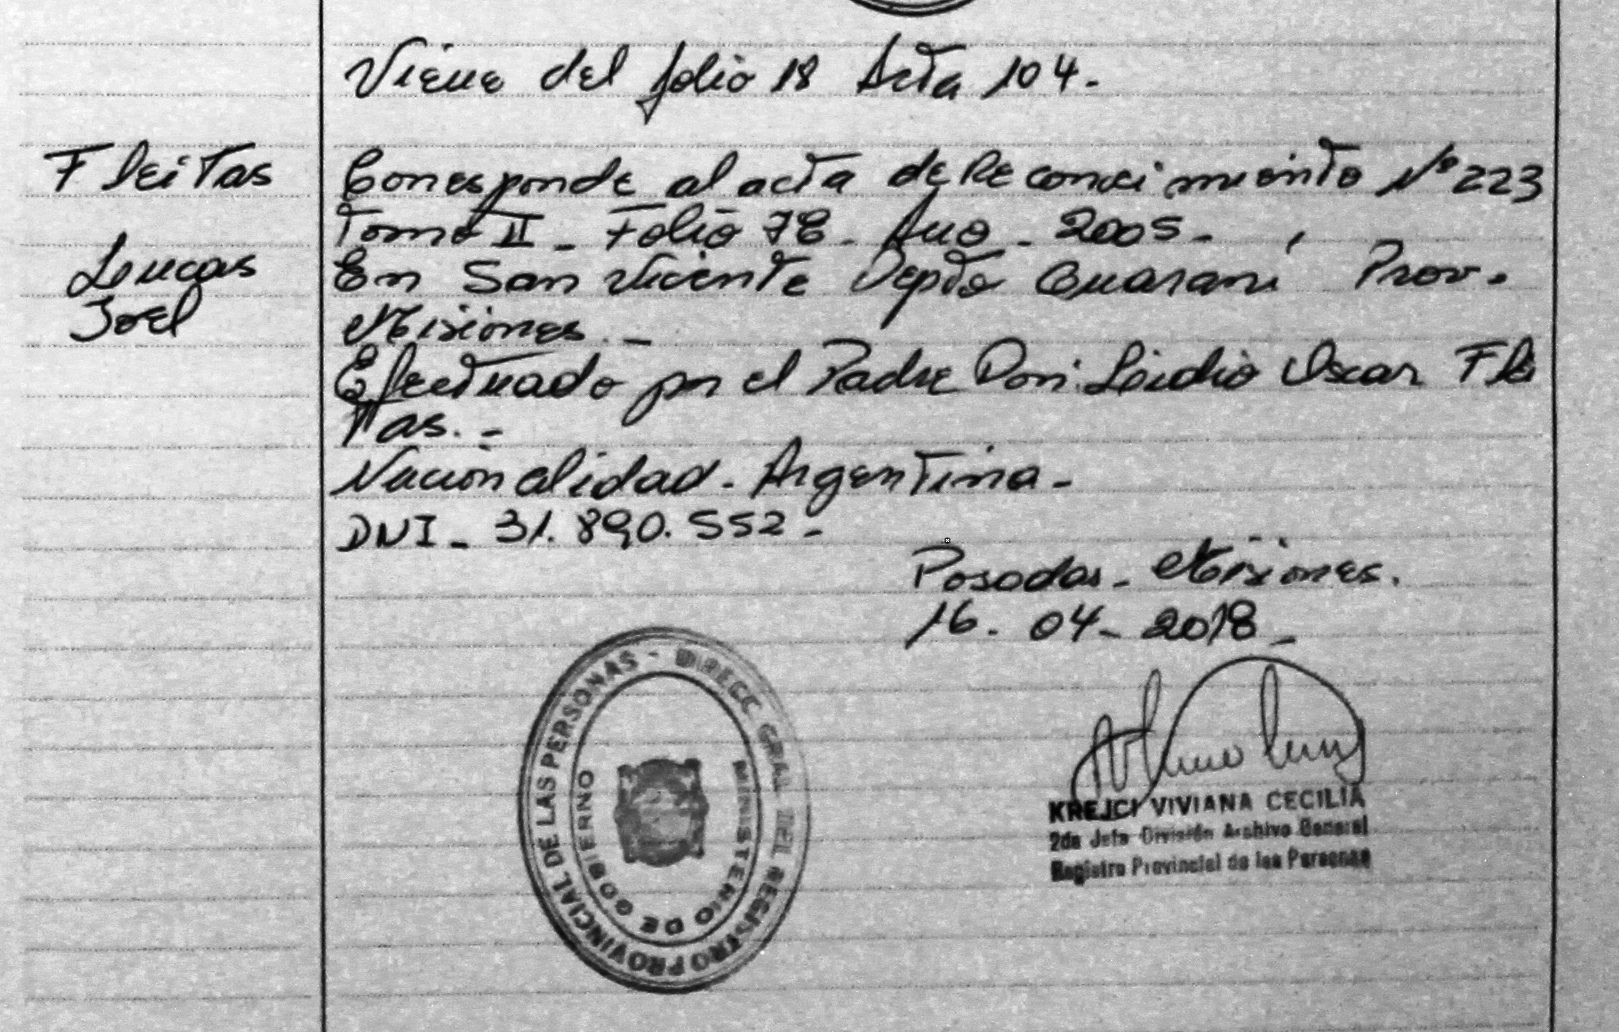 Viene del folio 18 Acta 104.
Fleitas
Loucas
Joel
Corresponde al acta de Reconocimiento N° 223
Tomo II - Folio 78 - Año - 2005 -
En San Vicente Depto Guaraní Prov.
Misiones. -
Efectuado por el Padre Don: Leidio Oscar Flei
tas. -
Nacionalidad - Argentina -
DNI - 31.890.552 -
Posadas - Misiones.
16 - 04 - 2018 -
DIRECC. GRAL. DEL REGISTRO PROVINCIAL DE LAS PERSONAS -
MINISTERIO DE GOBIERNO
KREJCI VIVIANA CECILIA
2da Jefa División Archivo General
Registro Provincial de las Personas